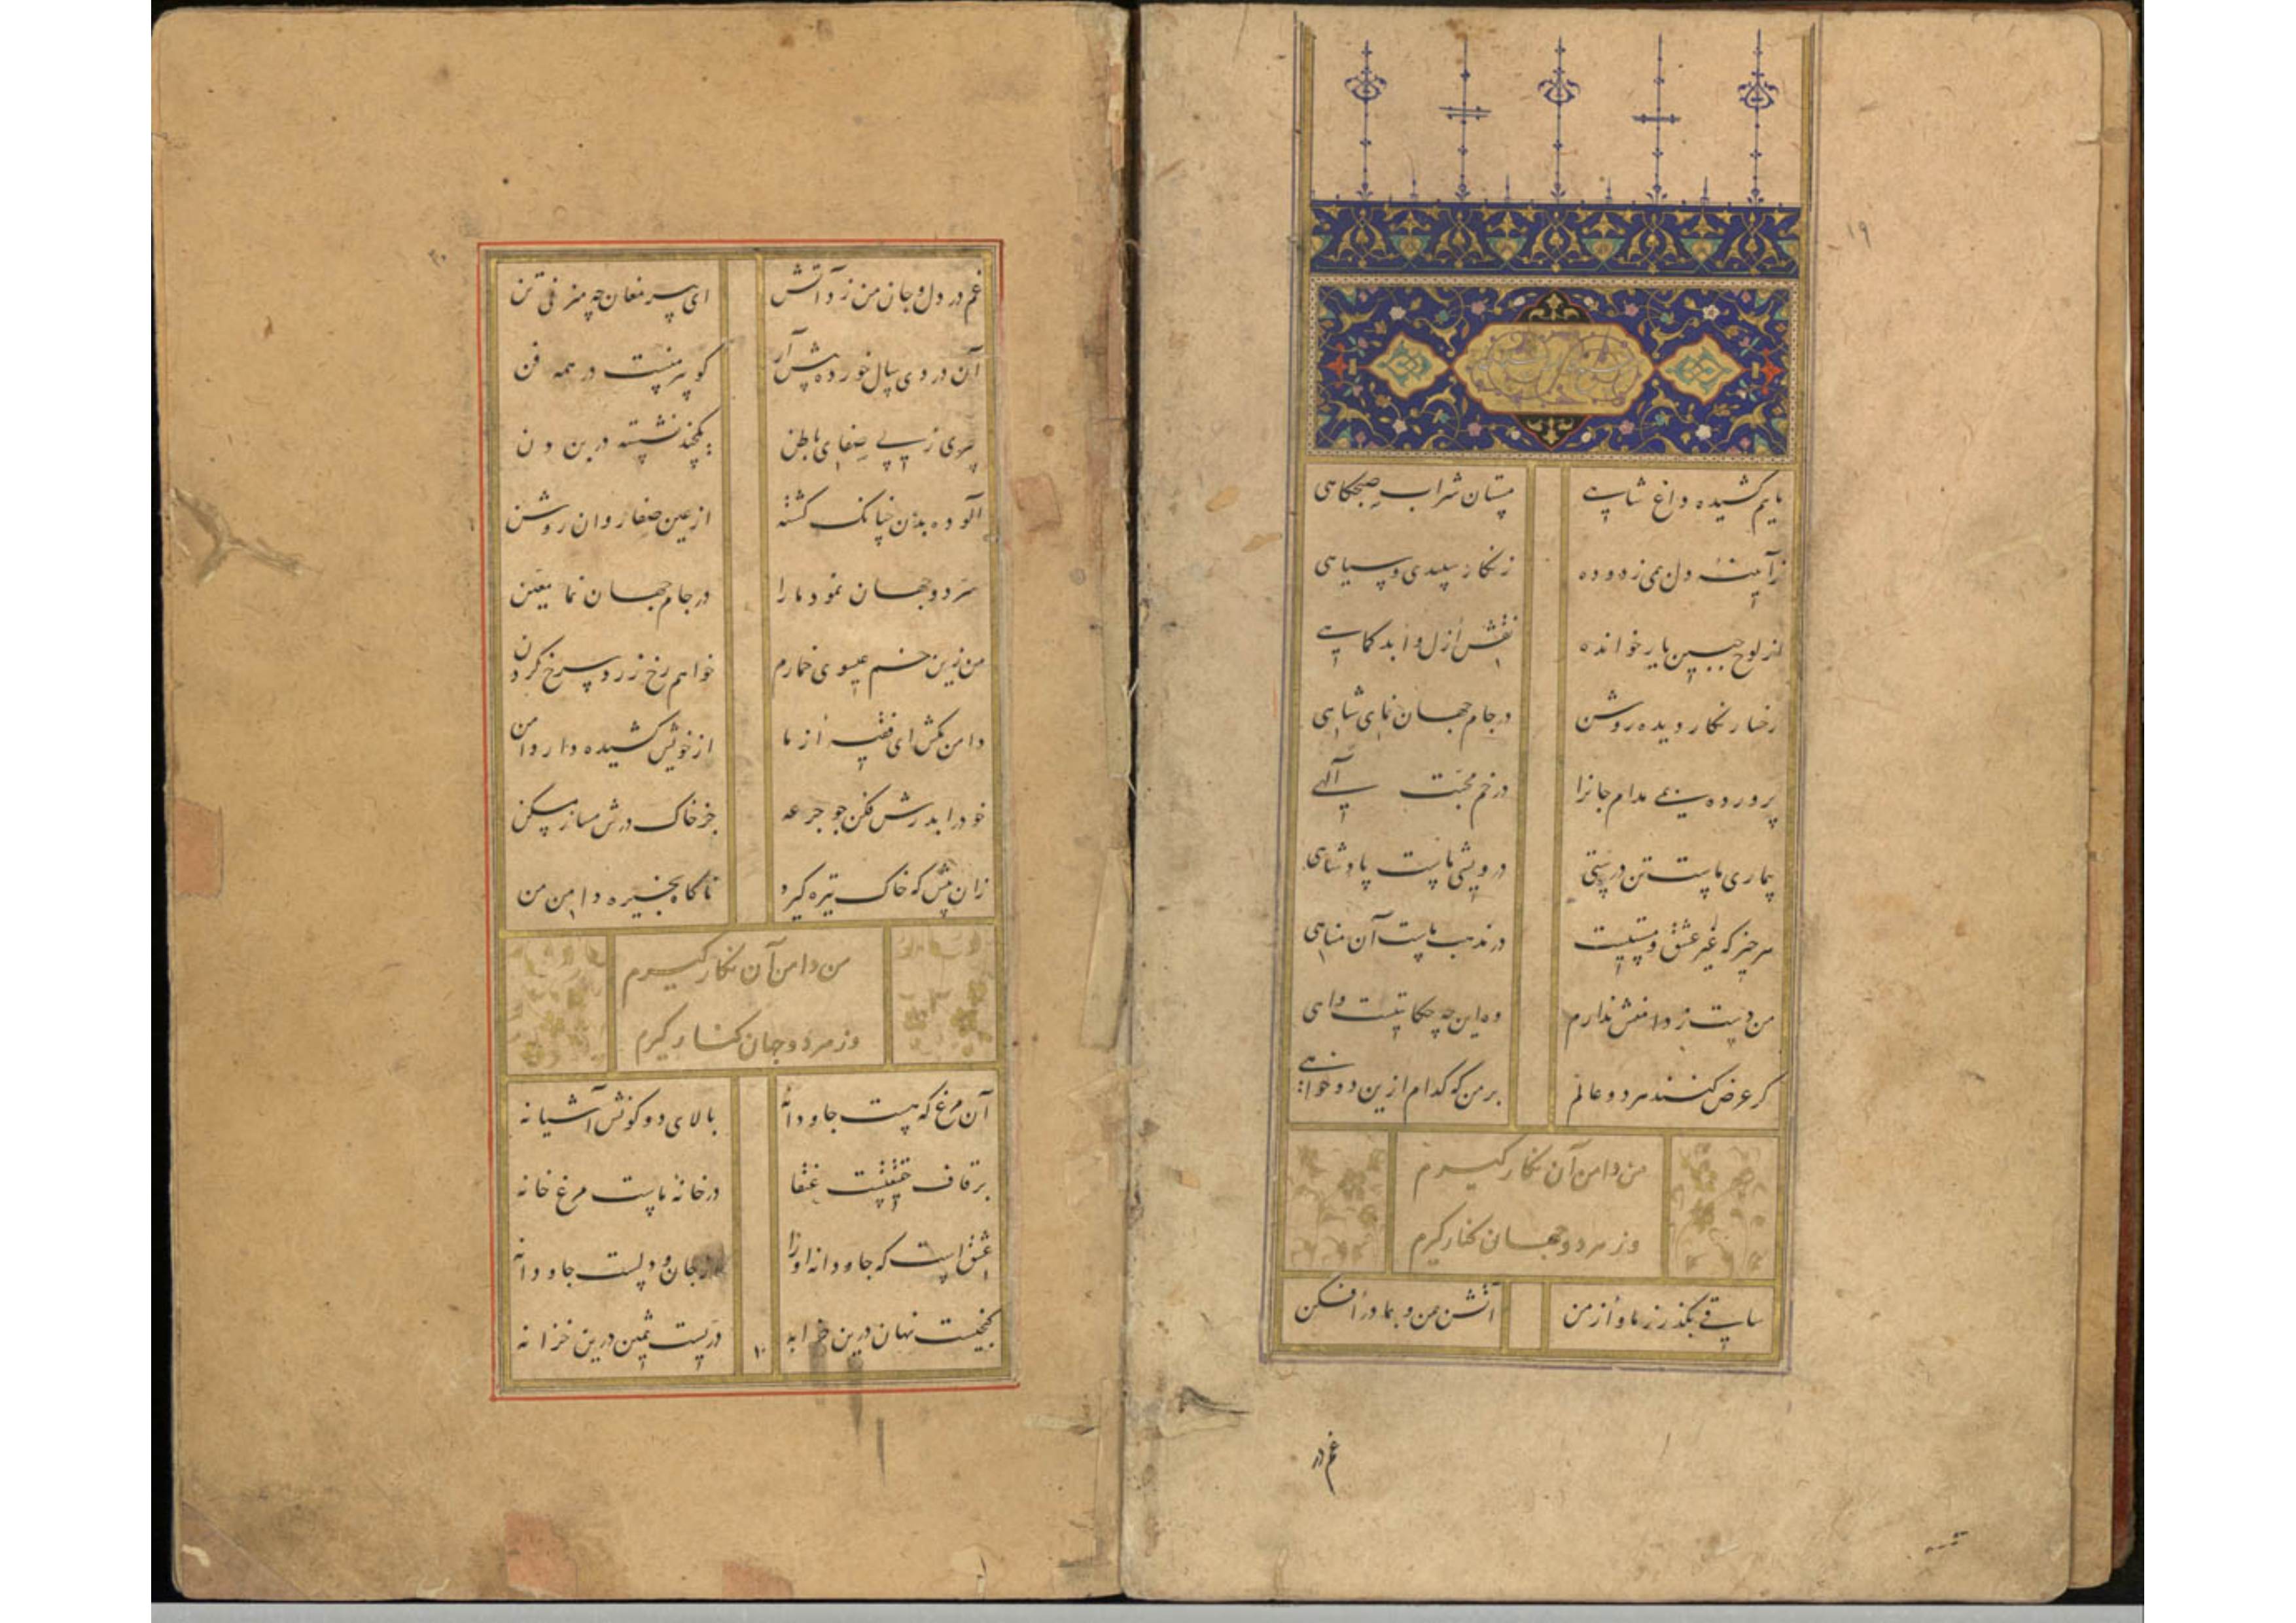 ۱۹
مایم کشیده داغ شاهی مستان شراب صبحکاهی
زآیینهٔ دل می زدوده زنکار سپیدی و سیاهی
از لوح جبین یار خوانده نقش ازل و ابد کماهی
رخسار نکار دیده روشن در جام جهان نمای شاهی
پرورده بمی مدام جانرا در خم محبت آلهی
بیماری ماست تن درستی درویشی ماست پادشاهی
هر چیز که غیر عشق و مستیست در مذهب ماست آن مناهی
من دست ز دامنش ندارم وه این چه حکایتست واهی
کر عرض کنند هر دو عالم بر من که کدام ازین دو خواهی
من دامن آن نکار کیرم
وز هر دو جهان کنار کیرم
ساقی بکذر ز ما و از من آتش بمن و بما درافکن
غم در
۲۰
غم در دل و جان من زد آتش ای پیر مغان چه میزنی تن
آن دردی سال خورده پیش آر کو پیر منست در همه فن
پیری ز پی صفای باطن یکچند نشسته در بن دن
آلوده بدن چنانک کشته از عین صفا روان روشن
سر دو جهان نمود ما را در جام جهان نما معین
من زین خم عیسوی خمارم خواهم رخ زرد سرخ کردن
دامن بکش ای فقیه از ما از خویش کشیده دار دامن
خود را بدرش فکن جو جرعه جز خاک درش مساز مسکن
زان پیش که خاک تیره کیرد ناکاه بخیره دامن من
من دامن آن نکار کیرم
وز هر دو جهان کنار کیرم
آن مرغ که هست جاودانه بالای دو کونش آشیانه
بر قاف حقیقتست عنقا در خانهٔ ماست مرغ خانه
عشق است که جاودانه او را از جان و دلست جاودانه
کنجیست نهان درین خرابه درّیست ثمین درین خزانه
۱۰